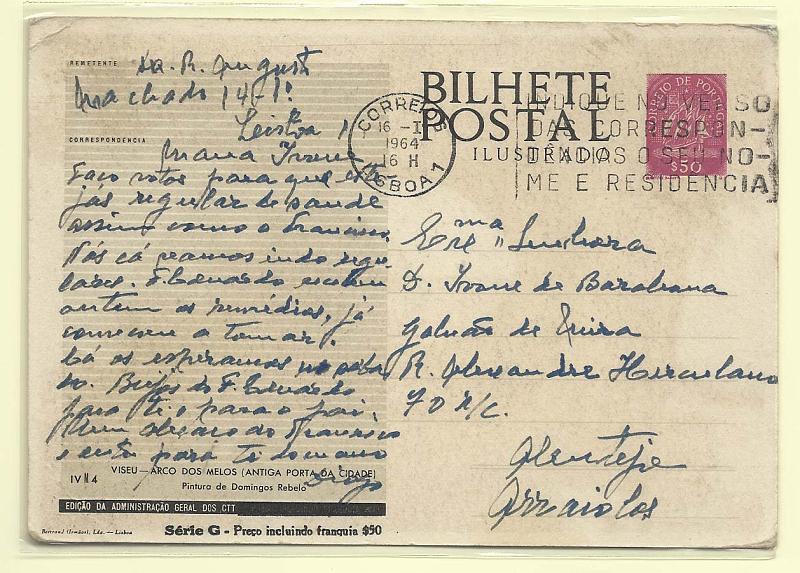 REMETENTE
Da. R. Augusto
Machado 14-1º
Lisboa 1
CORRESPONDENCIA
Maria Ivone
Faço votos para que este
jás regular de saude
assim como o Francisco
Nós cá vamos indo regu
lares. F. Eduardo
ontem os remédios, já
começou a tomar.
Cá os esperamos no saba
do. Bijos do F. Eduardo
para ti e para o pai.
Um abraço do Francisco
e para ti do mano
VISEU—ARCO DOS MELOS (ANTIGA PORTA DA CIDADE)
IV Nº 4
Pintura de Domingos Rebelo
EDIÇÃO DA ADMINISTRAÇÃO GERAL DOS CTT
Bertrand (Irmãos), Lda. — Lisboa
Série G - Preço incluindo franquia $50
BILHETE
POSTAL
ILUSTRADO
CORREIOS
16 -I
1964
16 H
LISBOA 1
INDIQUE NO VERSO
DAS CORRESPON-
DENCIAS O SEU NO-
ME E RESIDENCIA
CORREIO DE PORTUGAL
$50
Exma Senhora
D. Ivone de Barahona
Galvão de
R. Alexandre Herculano
70 r/c.
Alentejo
Arraiolos